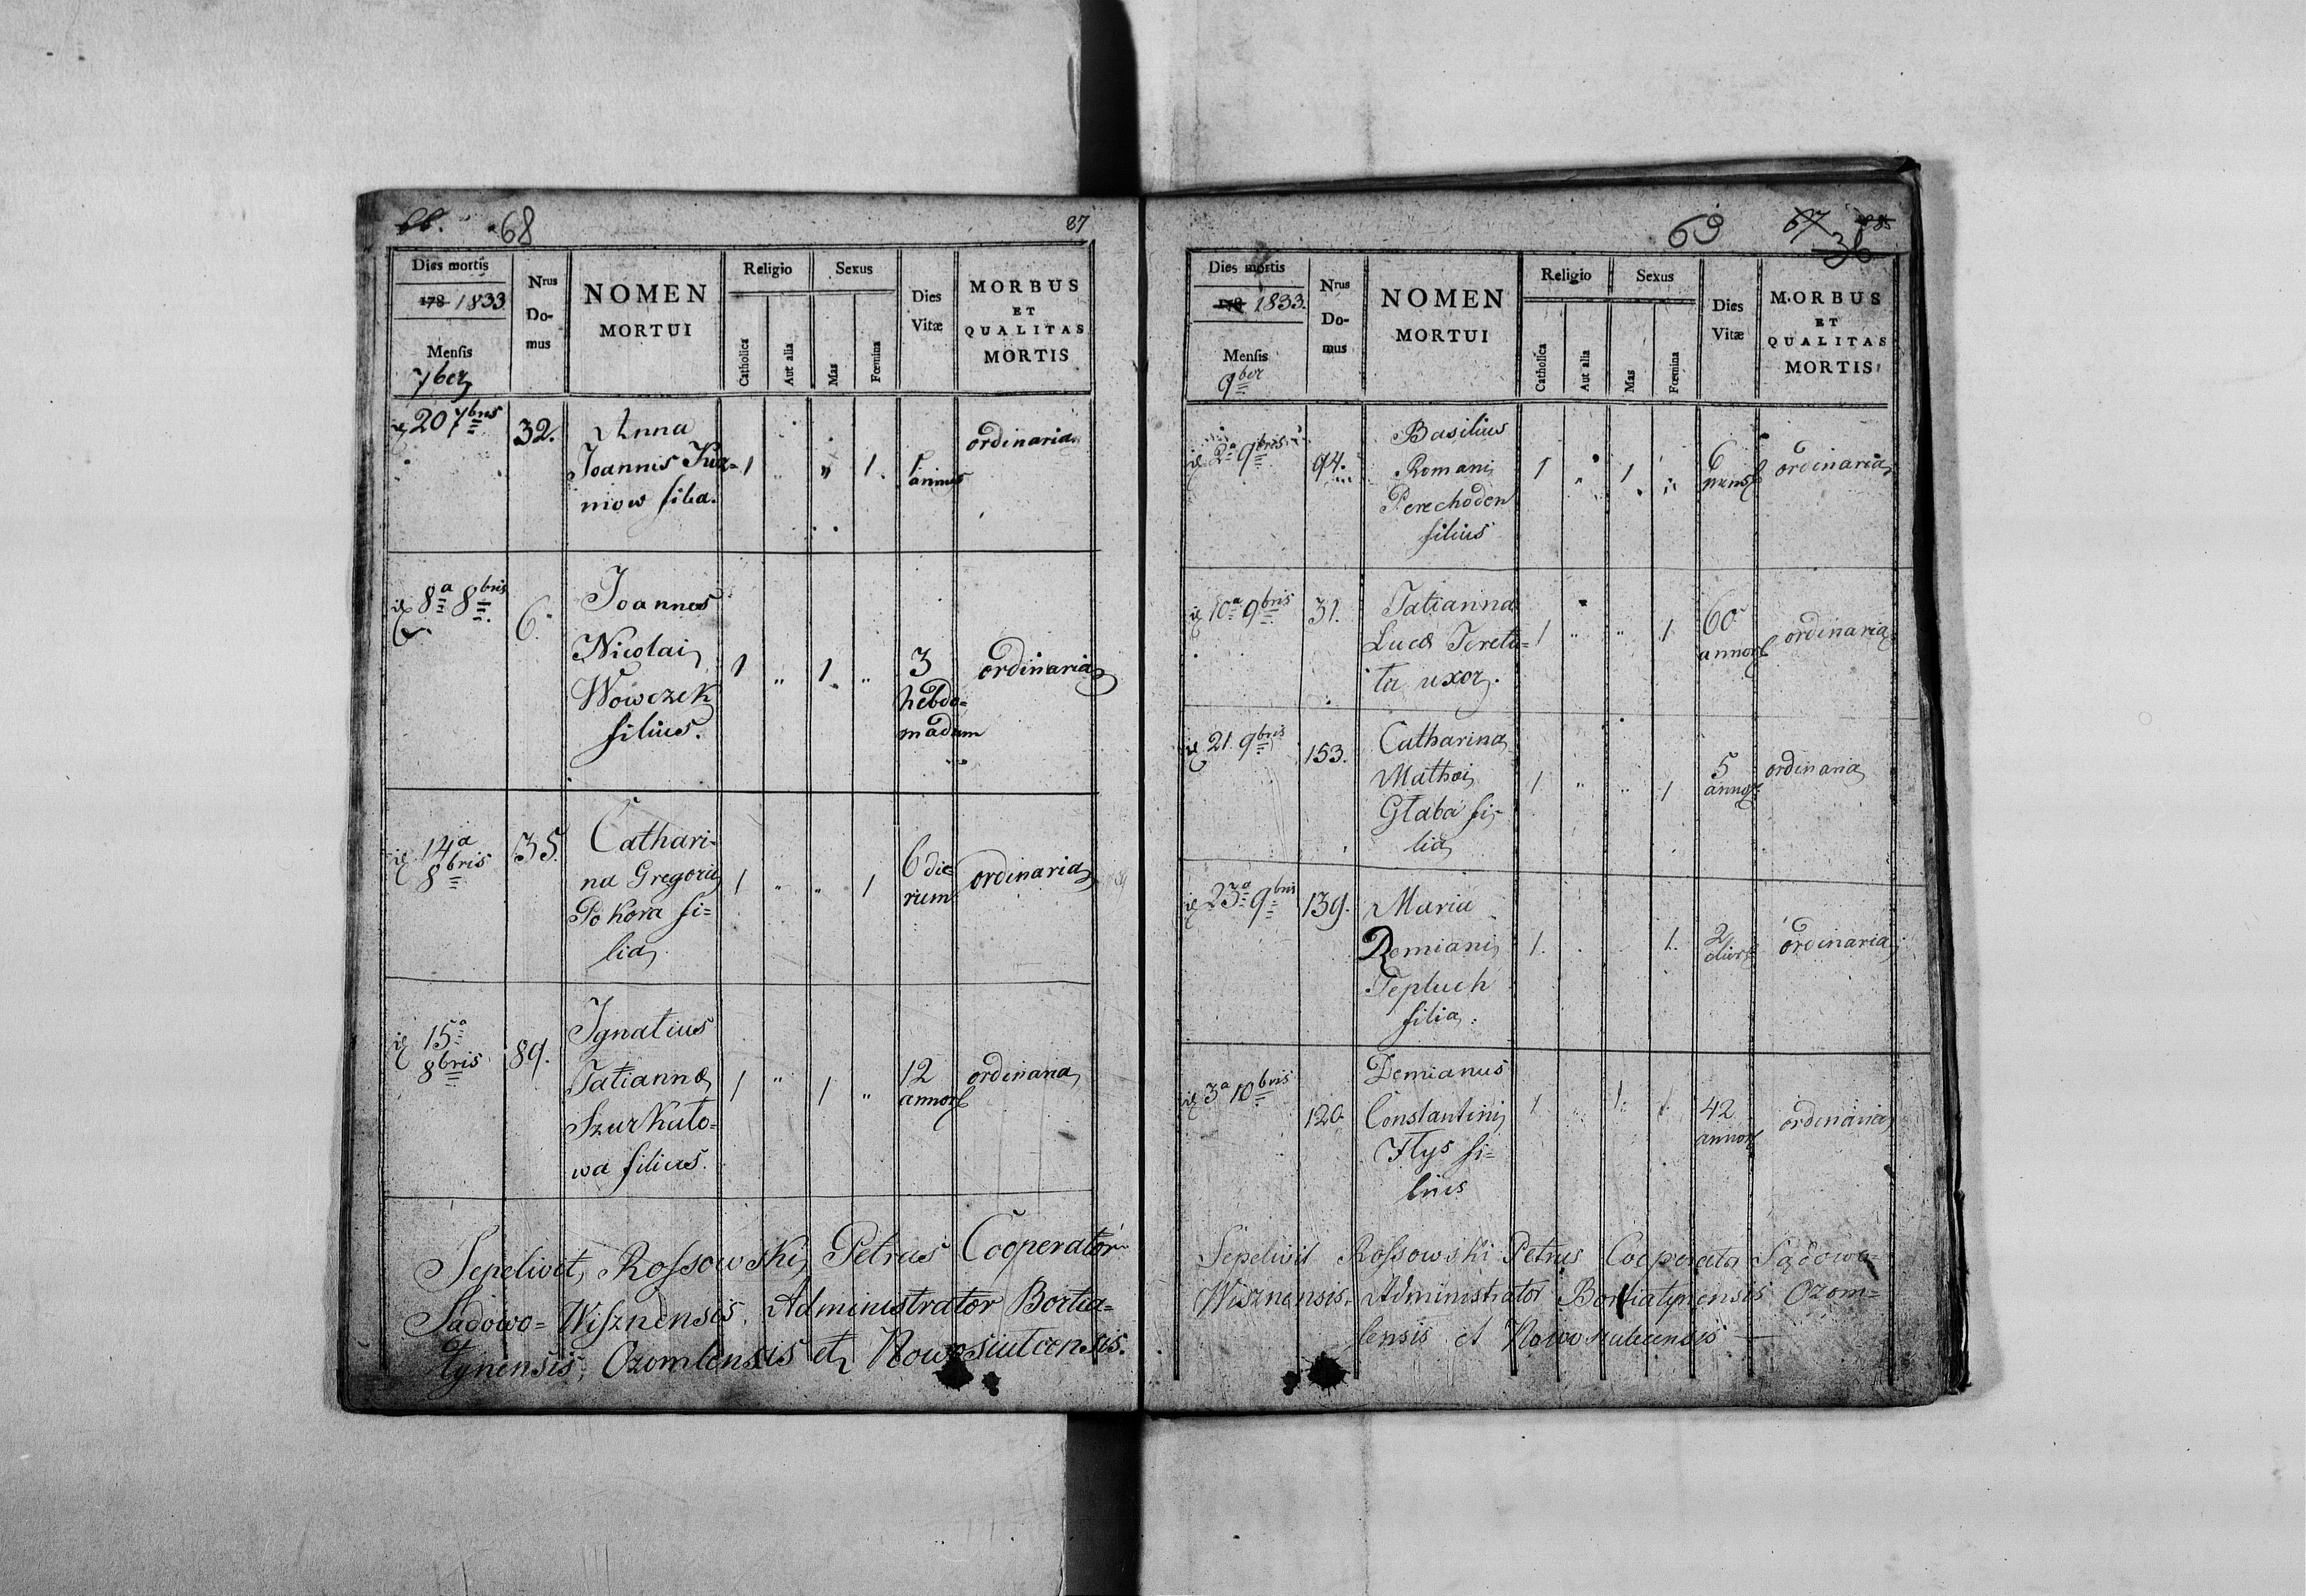 66. 68 87
Dies mortis
178 1833
Mensis
7ber
Nrus
Do-
mus
NOMEN
MORTUI
Religio
Catholica
Aut alia
Sexus
Mas
Fœmina
Dies
Vitæ
MORBUS
ET
QUALITAS
MORTIS
20 7bris 32. Anna
Joannis Kuz=
niow filia.
1 " " 1. 1
annus
ordinaria
8a 8bris 6. Joannes
Nicolai
Wowczek
filius.
1 " 1 " 3
hebdo=
madum
ordinaria
14a
8bris
35. Cathari-
na Gregorii
Pokora fi=
lia
1 " " 1 6 die
rum
ordinaria
15a
8bris
89. Ignatius
Tatiannæ
Szurkato=
wa filius.
1 " 1 " 12
annor
ordinaria
Sepelivit Rossowski Petrus Cooperator
Sadowo=Wisznensis. Administrator Bortia=
tynensis, Ozomlensis et Nowosiulcensis.
69 67 88
36
Dies mortis
178 1833.
Mensis
9ber
Nrus
Do-
mus
NOMEN
MORTUI
Religio
Catholica
Aut alia
Sexus
Mas
Fœmina
Dies
Vitæ
MORBUS
ET
QUALITAS
MORTIS
2a 9bris 94. Basilius
Romani
Perechoden
filius
1 " 1 " 6
mens
ordinaria
10a 9bris 31. Tatianna
Lucæ Tereta=
ta uxor.
1 " " 1 60
annor
ordinaria
21. 9bris 153. Catharina
Mathæi
Głaba fi-
lia
1 " " 1 5
annor
ordinaria
23a 9bris 139. Maria
Demiani
Tepluch
filia.
1. 1. 2
dier
ordinaria
3a 10bris 120. Demianus
Constantini
Flys fi=
lius
1 1 42
annor
ordinaria
Sepelivit Rossowski Petrus Cooperator Sądowo=
Wisznensis. Administrator Bortiatynensis Ozom=
lensis et